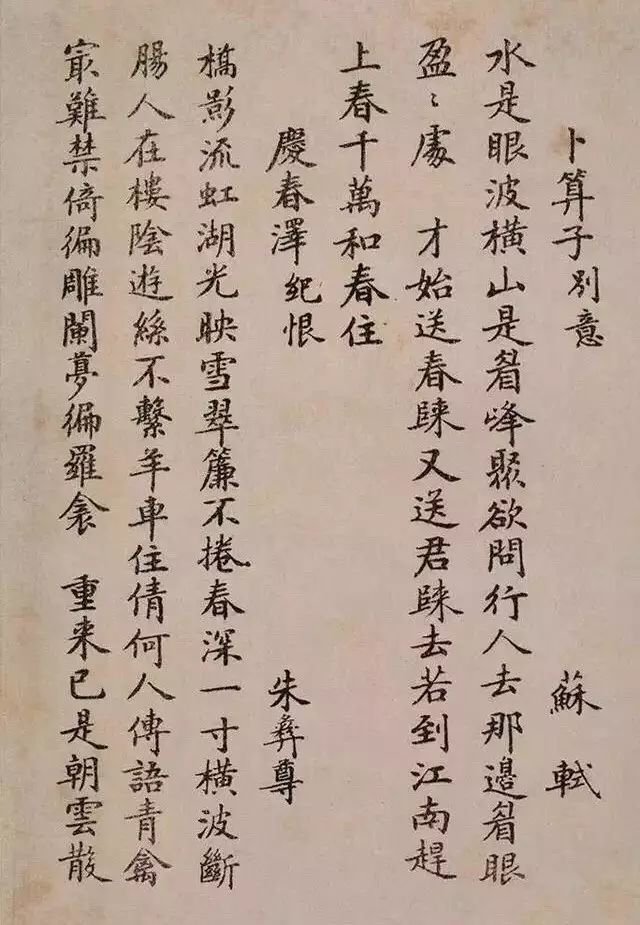 卜算子 別意 蘇軾
水是眼波橫山是眉峰聚欲問行人去那邊眉眼
盈〻處 才始送春歸又送君歸去若到江南趕
上春千萬和春住
慶春澤 紀恨 朱彝尊
橋影流虹湖光映雪翠簾不捲春深一寸橫波斷
腸人在樓陰遊絲不繫羊車住倩何人傳語青禽
㝡難禁倚徧雕闌夢徧羅衾 重来已是朝雲散